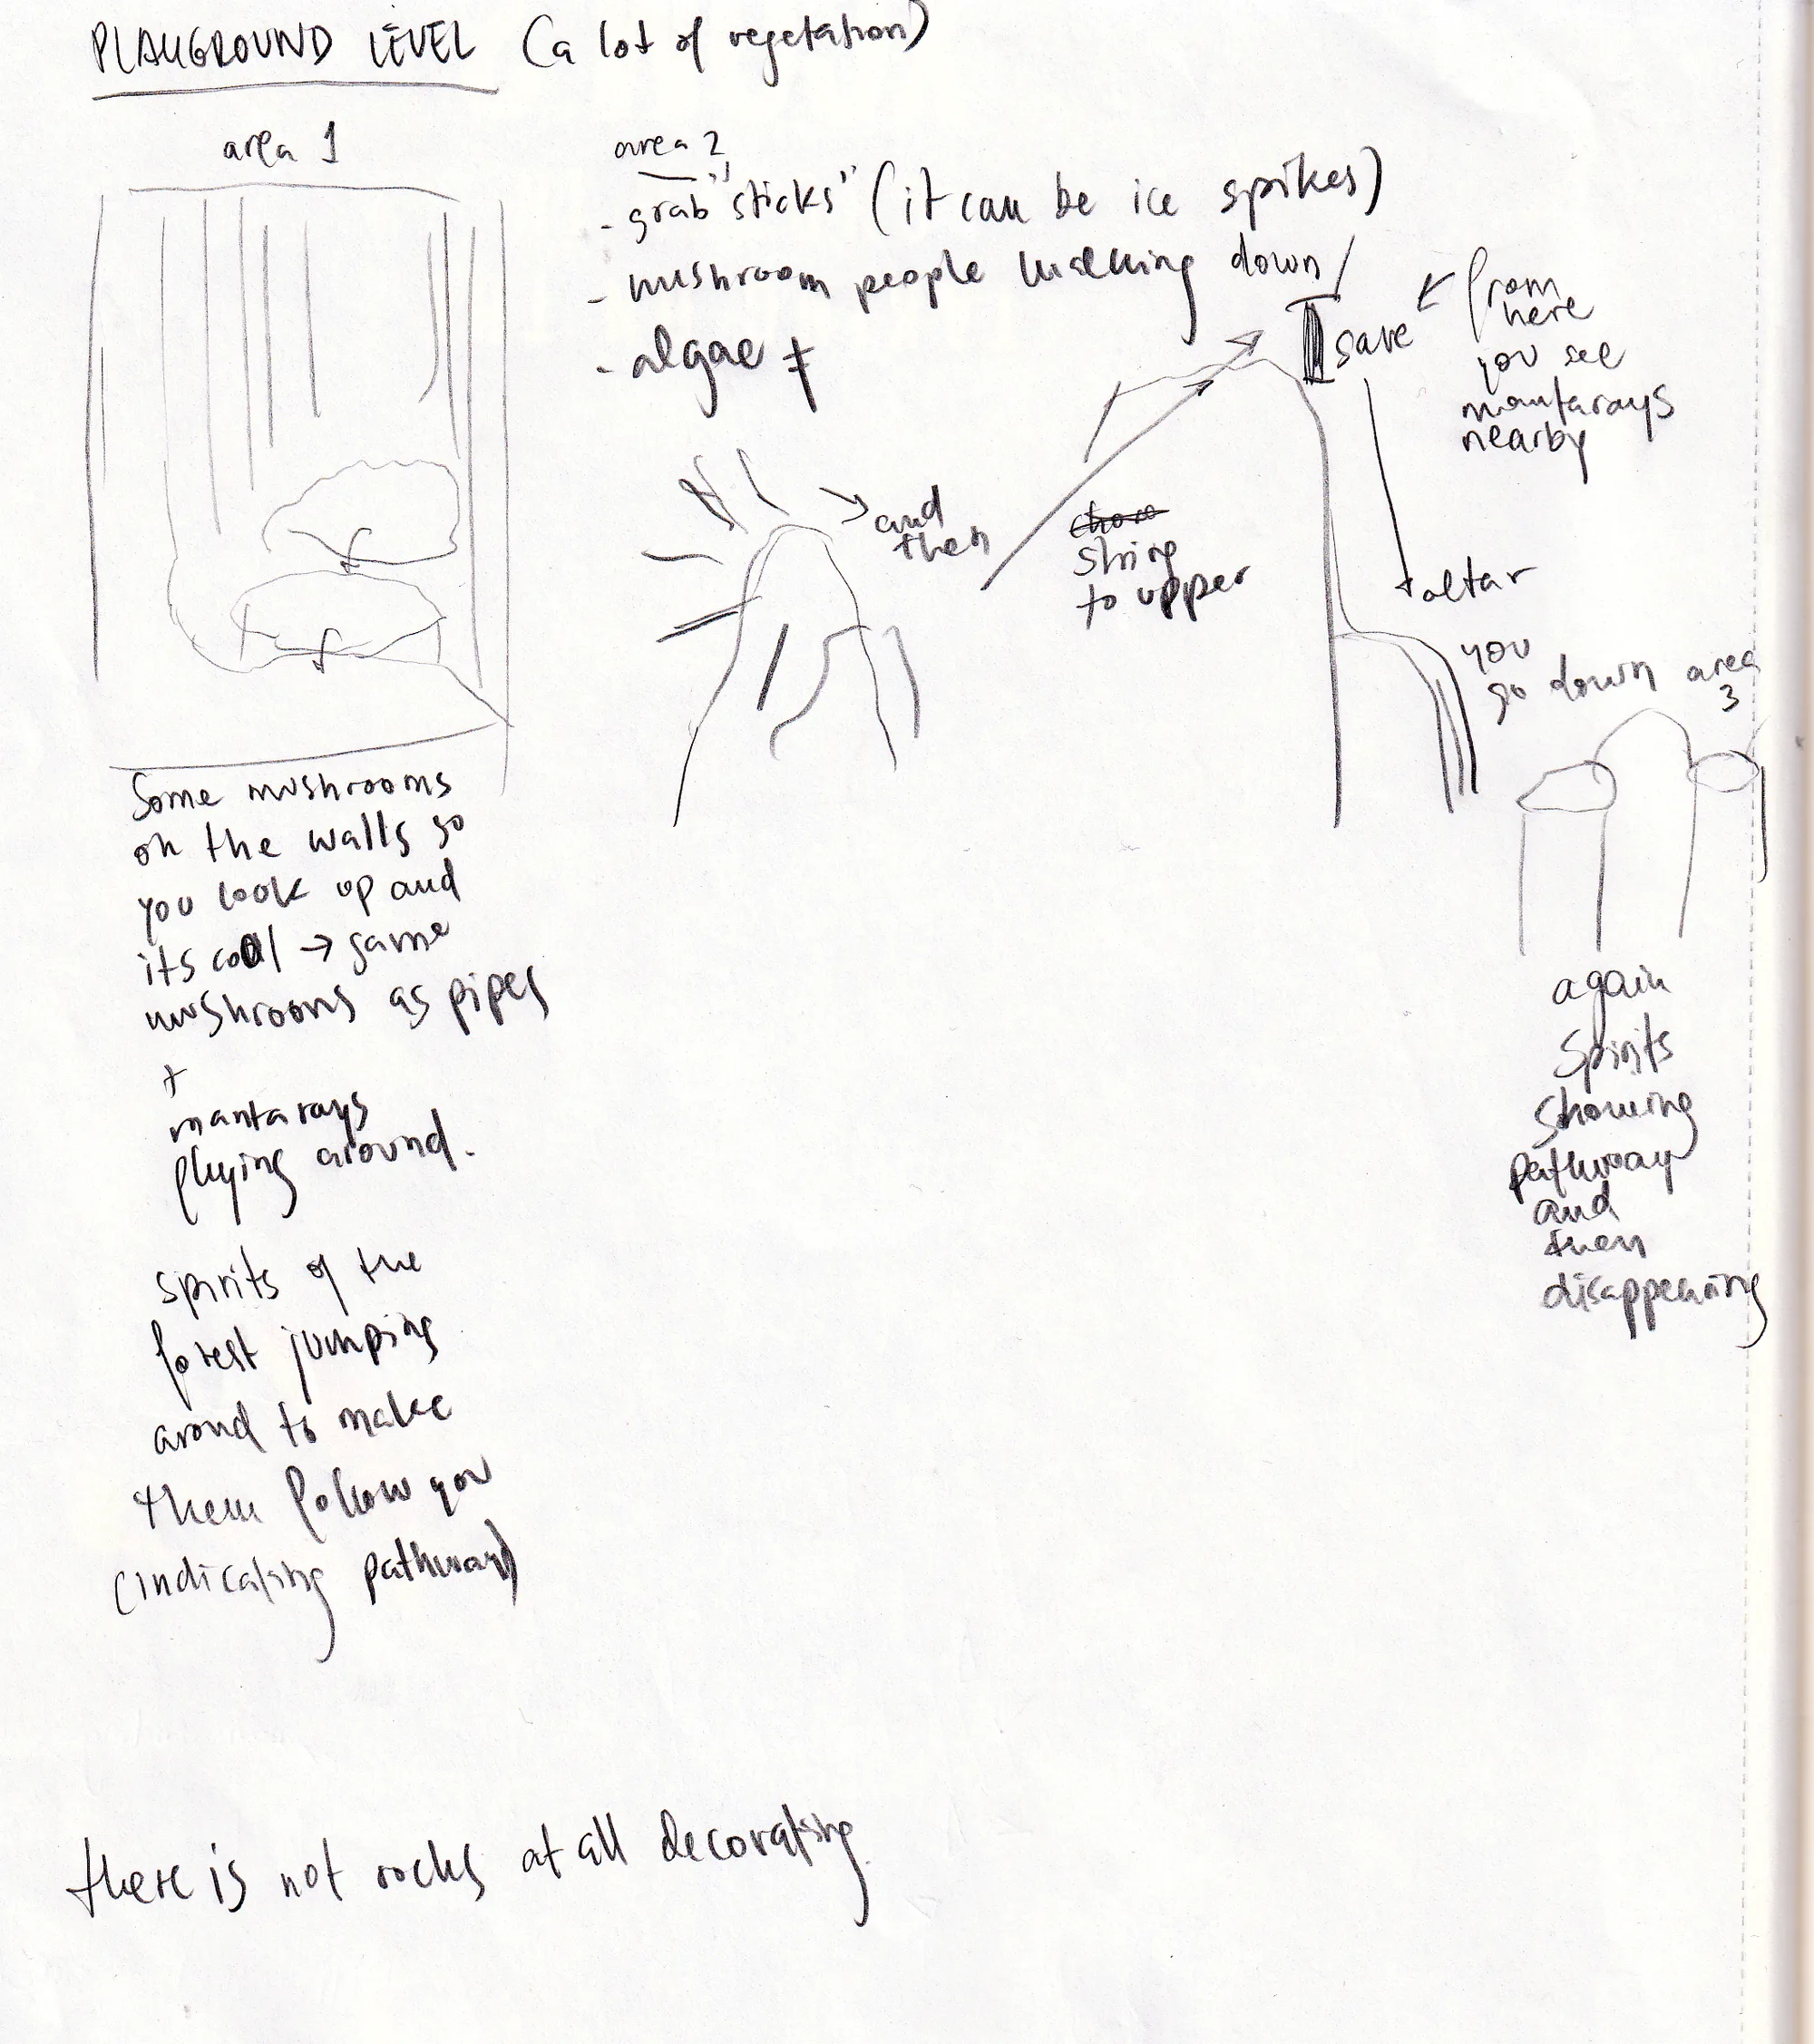 PLAYGROUND LEVEL (a lot of vegetation)
area 1
Some mushrooms
on the walls so
you look up and
its cool → same
mushrooms as pipes
+
mantarays
plying around.
spirits of the
forest jumping
arond to make
them follow you
(indicating pathway)
area 2
- grab "sticks" (it can be ice spikes)
- mushroom people walking down
- algae
and
then
string
to upper
save
from
here
you see
mantarays
nearby
altar
you
go down area
3
again
Spirits
showing
pathway
and
then
disappearing
there is not rocks at all decorating.